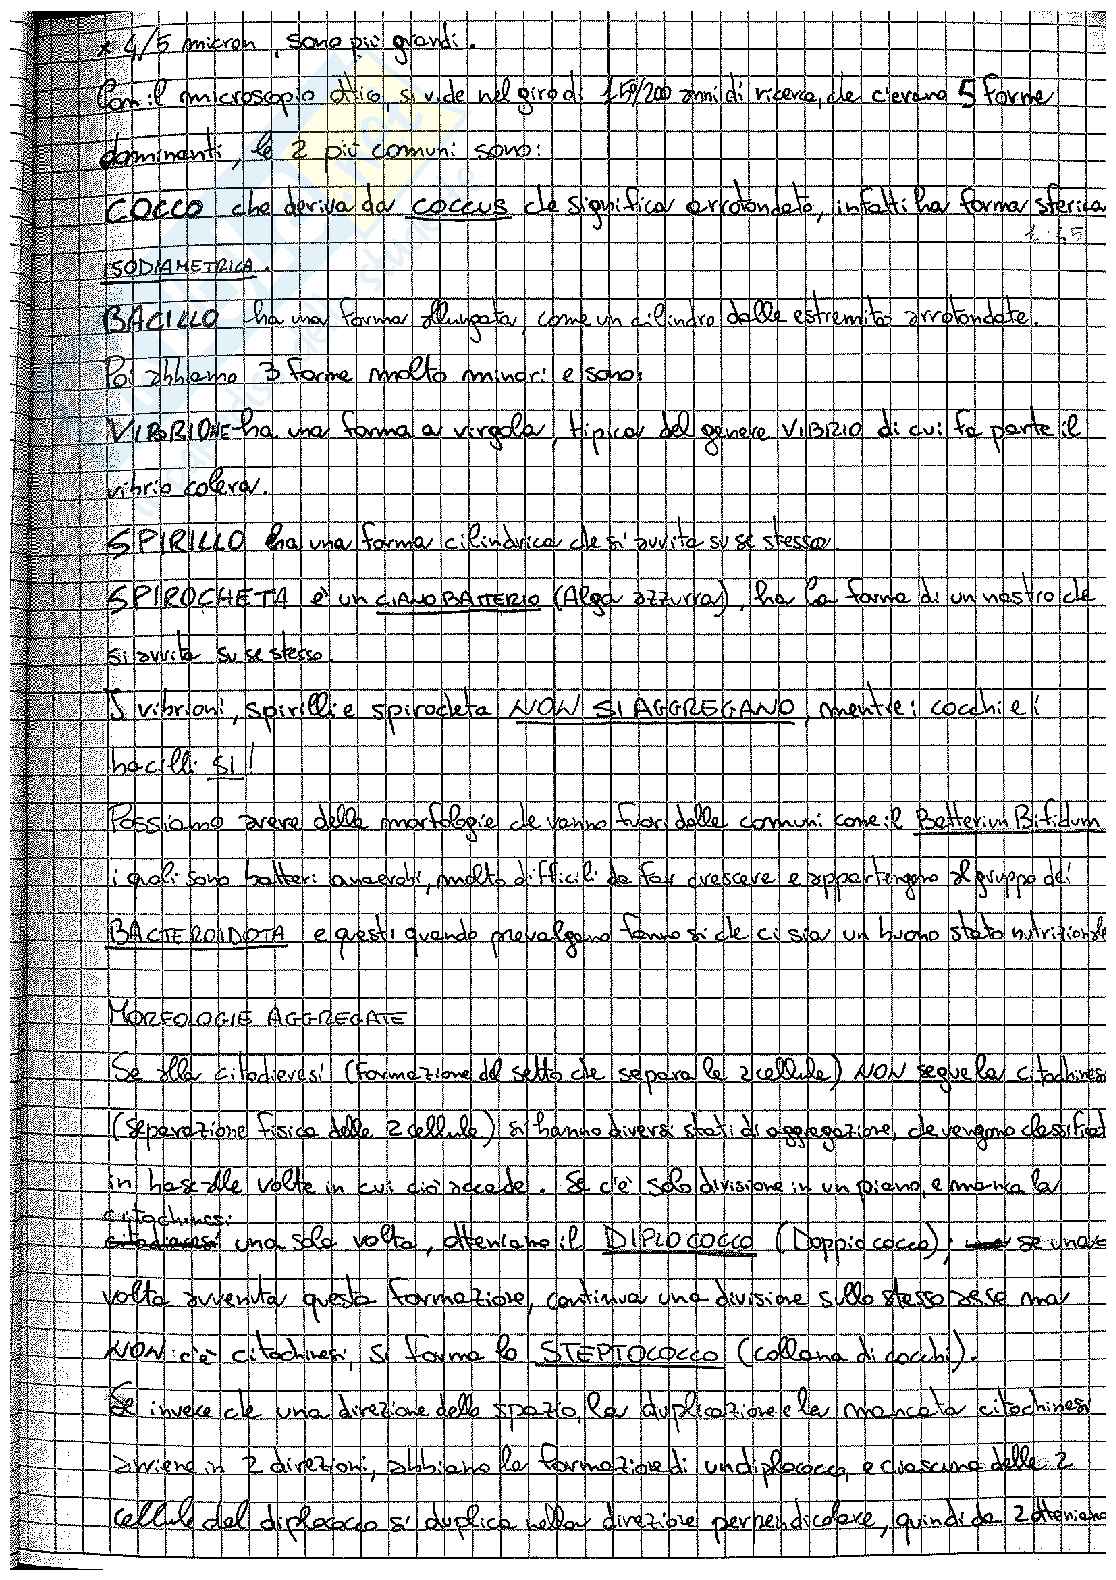 × 4/5 micron, sono più grandi.
Con il microscopio ottico, si vide nel giro di 150/200 anni di ricerca, che c'erano 5 forme
dominanti, le 2 più comuni sono:
COCCO che deriva da COCCUS che significa arrotondato, infatti ha forma sferica
ISODIAMETRICA.
BACILLO ha una forma allungata, come un cilindro dalle estremità arrotondate.
Poi abbiamo 3 forme molto minori e sono:
VIBRIONE ha una forma a virgola, tipica del genere VIBRIO di cui fa parte il
vibrio colera.
SPIRILLO ha una forma cilindrica che si avvita su se stesso
SPIROCHETA è un CIANOBATTERIO (Alga azzurra), ha la forma di un nastro che
si avvita su se stesso.
I vibrioni, spirilli e spirocheta NON SI AGGREGANO, mentre i cocchi e i
bacilli SI!
Possiamo avere delle morfologie che vanno fuori dalle comuni come il Batterium Bifidum
i quali sono batteri anaerobi, molto difficili da far crescere e appartengono al gruppo dei
BACTEROIDOTA e questi quando prevalgono fanno sì che ci sia un buono stato nutrizionale
MORFOLOGIE AGGREGATE
Se alla citodieresi (formazione del setto che separa le 2 cellule) NON segue la citochinesi
(separazione fisica delle 2 cellule) si hanno diversi stati di aggregazione, che vengono classificat
in base alle volte in cui ciò accade. Se c'è solo divisione in un piano, e manca la
citochinesi
citodieresi una sola volta, otteniamo il DIPLOCOCCO (Doppio cocco); se una
volta avvenuta questa formazione, continua una divisione sullo stesso asse ma
NON c'è citochinesi, si forma lo STEPTOCOCCO (collana di cocchi).
Se invece che una direzione dello spazio, la duplicazione e la mancata citochinesi
avviene in 2 direzioni, abbiamo la formazione di un diplococco, e ciascuna delle 2
cellule del diplococco si duplica nella direzione perpendicolare, quindi da 2 otteniamo